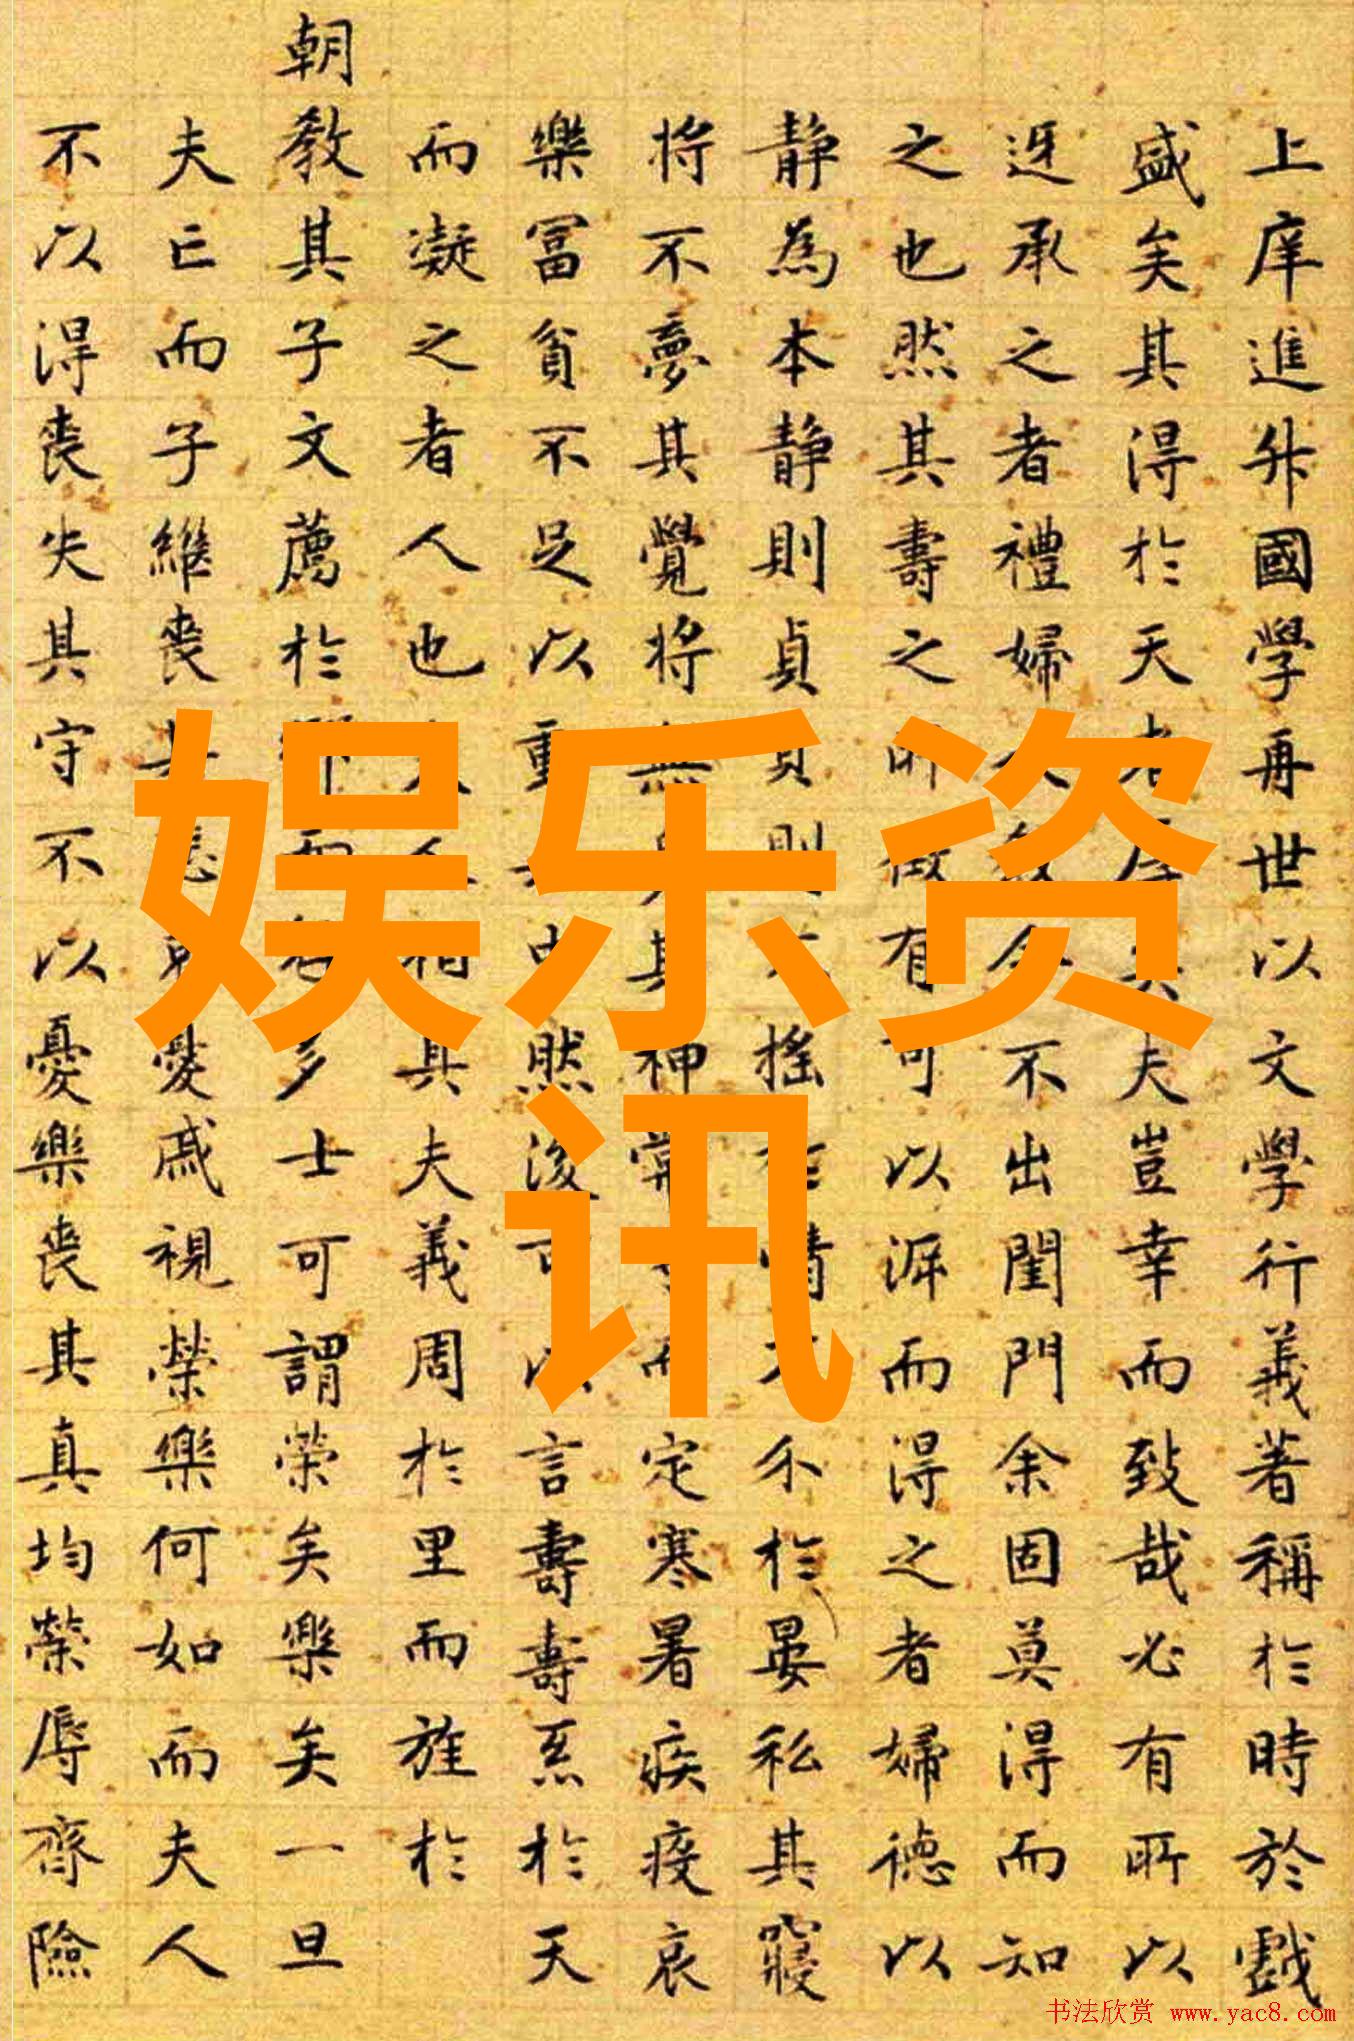 上庠進升國學再世以文學行義著稱於時於戲
盛矣其得於天者厚其夫豈幸而致哉必有所以
迓承之者禮婦人教令不出閨門余固莫得而知
之也然其壽之所徵有可以源而得之者婦德以
靜為本靜則貞貞則搖於情不介於晏私其寢
將不夢其覺將無其神常而定寒暑疾疫哀
樂冨貧不足以重其中然後可以言壽壽炁於天
而凝之者人也夫人相其夫義周於里而旌於
朝教其子文薦於鄉而多士可謂榮矣樂矣一旦
夫亡而子繼喪其悲哀憂戚視榮樂何如而夫人
不以得喪失其守不以憂樂喪其真均榮辱齊險
娱乐资
讯
书法欣赏 www.yac8.com